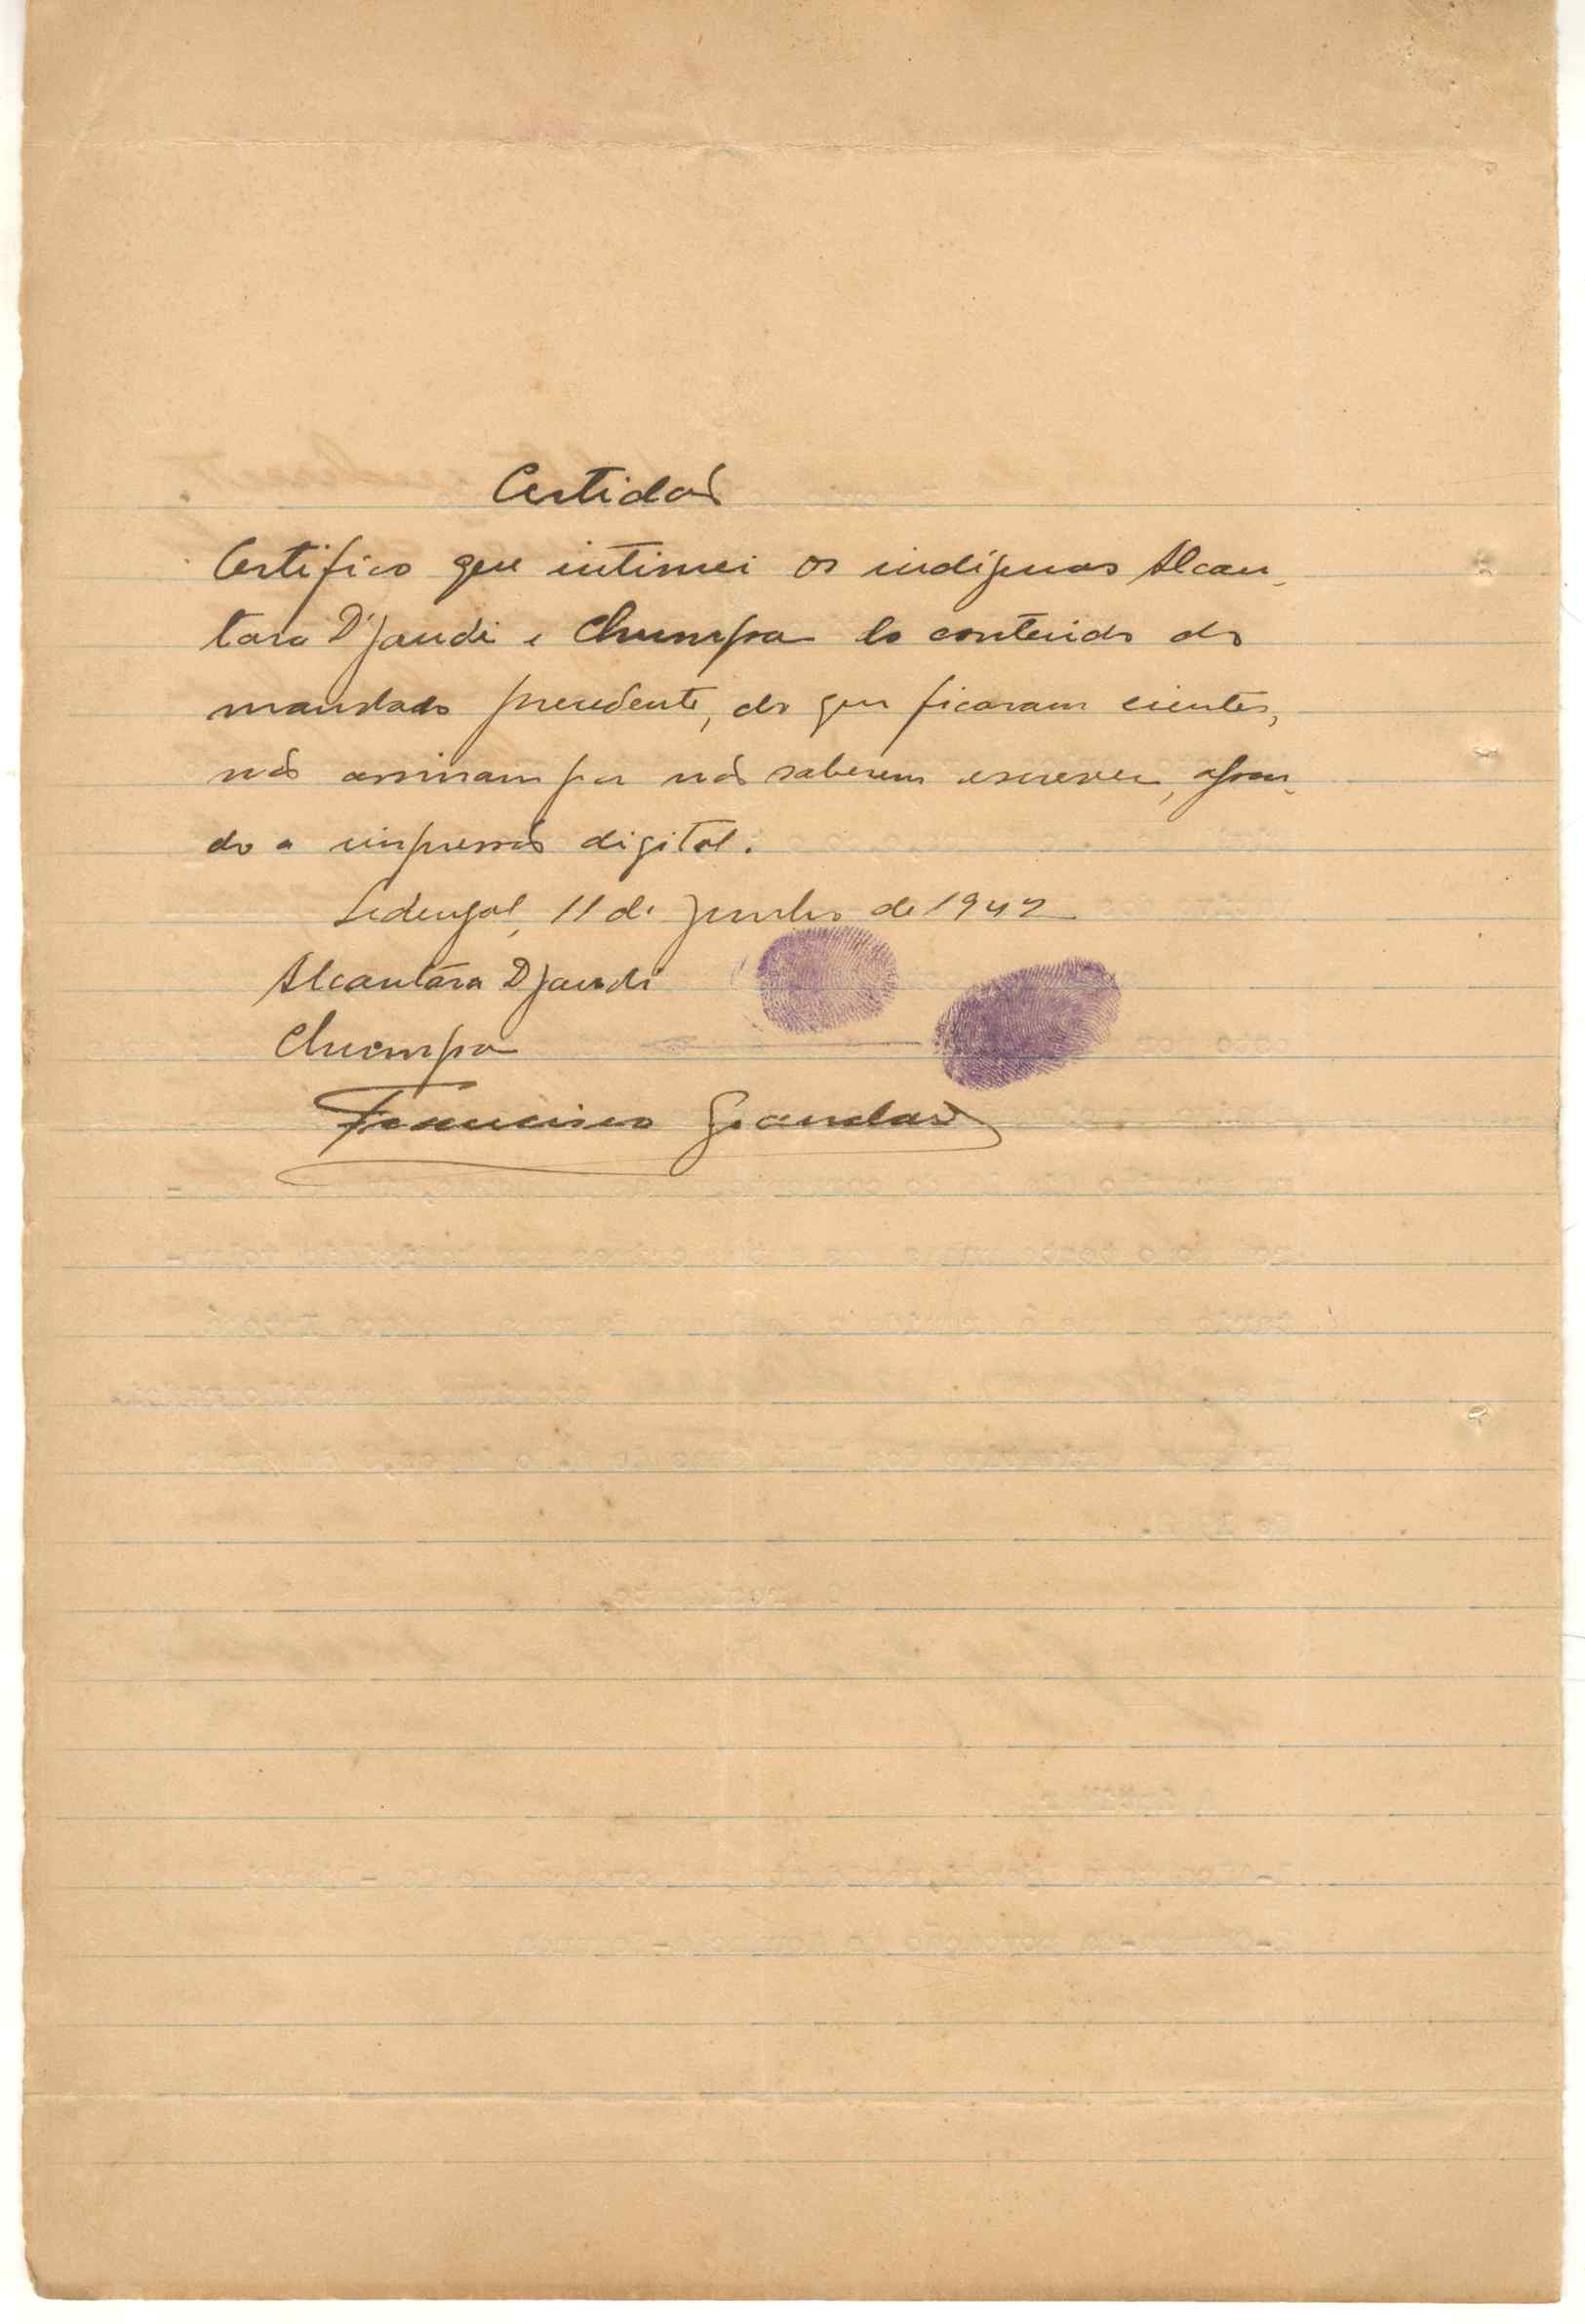 Certidão
Certifico que intimei os indígenas Alcan-
tara D'jaudi e Chumpa do conteúdo do
mandado precedente, do que ficaram cientes,
não assinam por não saberem escrever, apon-
do a impressão digital.
Sedengal, 11 de Junho de 1942
Alcantára Djaudi
Chumpa
Francisco Grandão